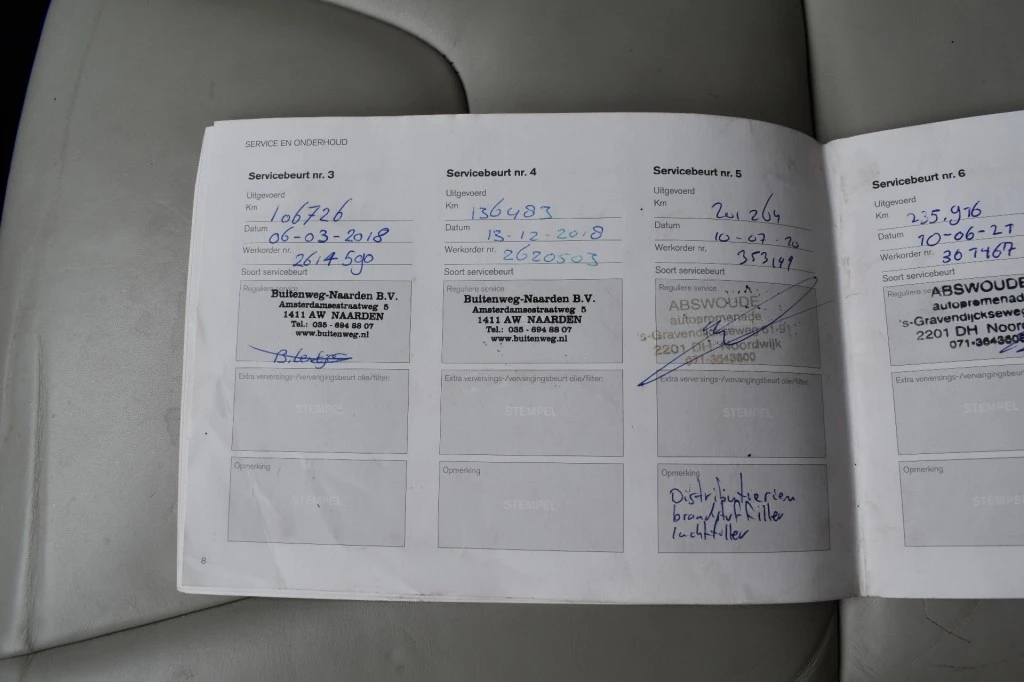 SERVICE EN ONDERHOUD
Servicebeurt nr. 3
Uitgevoerd
Km 106726
Datum 06-03-2018
Werkorder nr. 2614590
Soort servicebeurt
Reguliere service
Buitenweg-Naarden B.V.
Amsterdamsestraatweg 5
1411 AW NAARDEN
Tel.: 035 - 694 88 07
www.buitenweg.nl
Extra verversings-/vervangingsbeurt olie/filter:
STEMPEL
Opmerking
STEMPEL
8
Servicebeurt nr. 4
Uitgevoerd
Km 136483
Datum 13-12-2018
Werkorder nr. 2620503
Soort servicebeurt
Reguliere service
Buitenweg-Naarden B.V.
Amsterdamsestraatweg 5
1411 AW NAARDEN
Tel.: 035 - 694 88 07
www.buitenweg.nl
Extra verversings-/vervangingsbeurt olie/filter:
STEMPEL
Opmerking
STEMPEL
Servicebeurt nr. 5
Uitgevoerd
Km 201264
Datum 10-07-20
Werkorder nr. 353199
Soort servicebeurt
Reguliere service
ABSWOUDE
autopromenade
's-Gravendijckseweg 51-91
2201 DH Noordwijk
071-3643600
Extra verversings-/vervangingsbeurt olie/filter:
STEMPEL
Opmerking
Distributieriem
brandstoffilter
luchtfilter
Servicebeurt nr. 6
Uitgevoerd
Km 235.976
Datum 10-06-21
Werkorder nr. 307467
Soort servicebeurt
Reguliere service
ABSWOUDE
autopromenade
's-Gravendijckseweg
2201 DH Noord
071-3643600
Extra verversings-/vervangingsbeurt olie/filter:
STEMPEL
Opmerking
STEMPEL